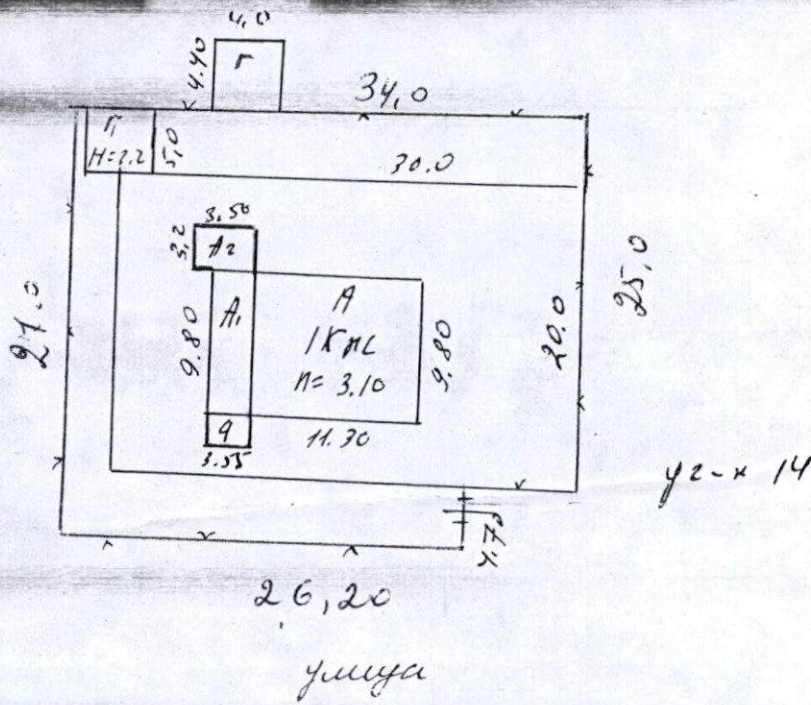 4,0
4.40
Г
34,0
Г1
H=2.2
5,0
30.0
3,50
3,2
A2
21,0
9.80
A1
A
1 К жс
h= 3.10
9.80
20.0
25,0
a
3.55
11.30
уг-к 14
4.70
26,20
улица